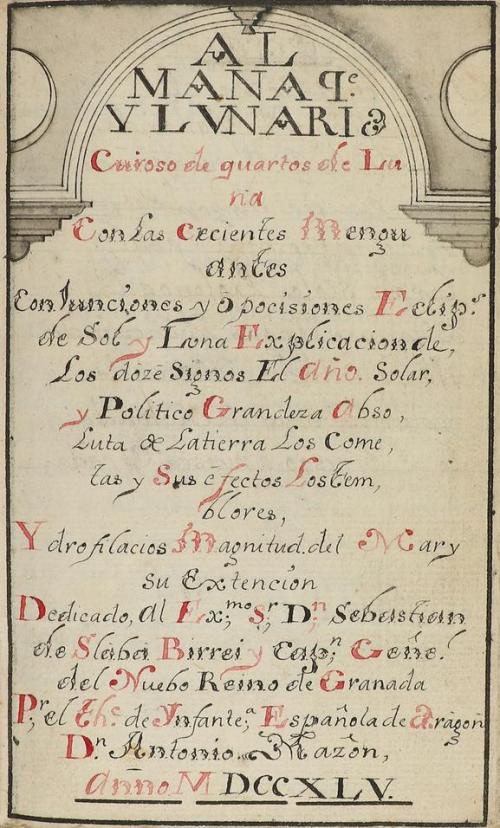 AL
MANAQ.e
Y LVNARIO
Curoso de quartos de Lu
na
Con Las Crecientes Mengu
antes
Conlunciones y Oposisiones Eclips.
de Sol y Luna Explicacion de,
Los doze Signos El Año. Solar,
y Politico Grandeza Abso,
Luta de Latierra Los Come,
tas y Sus efectos Lostem,
blores,
Ydrofilacios Magnitud. del Mar y
su Extención
Dedicado, al Ex;mo S;r D;n Sebastian
de Slaba Birrei y Cap;n Geñe.l
del Nuebo Reino de Granada
P;r el Th.e de Ynfante;a Española de Aragon
D.n Antonio. Mazon,
Anno M DCCXLV.